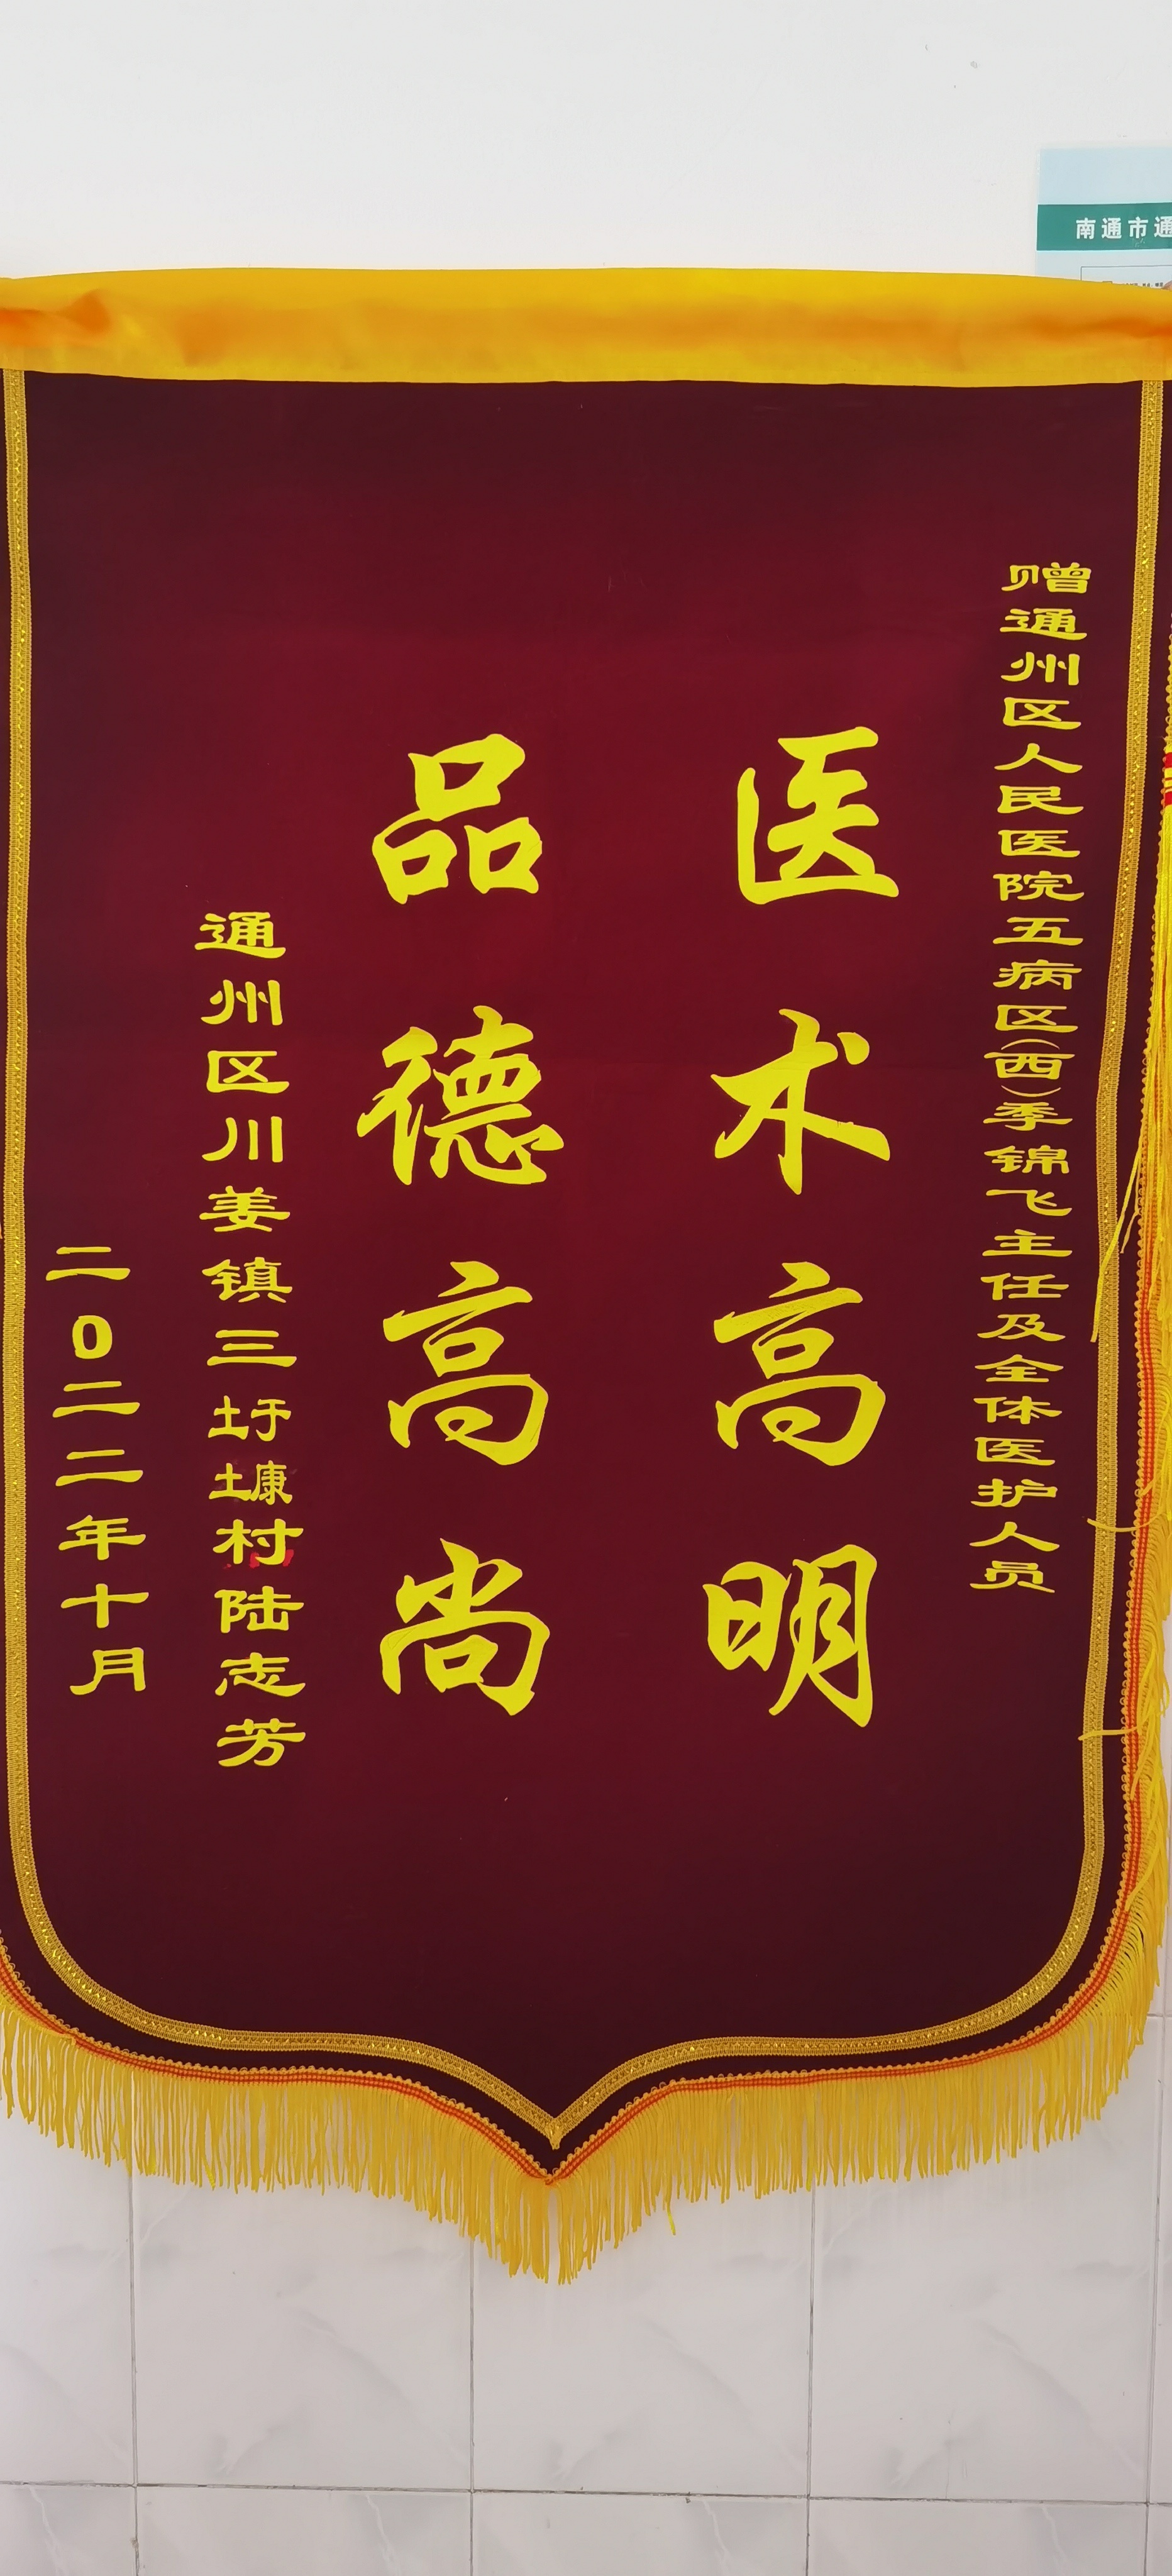 南通市通
赠通州区人民医院五病区(西)季锦飞主任及全体医护人员
医术高明
品德高尚
通州区川姜镇三圩塘村陆志芳
二0二二年十月